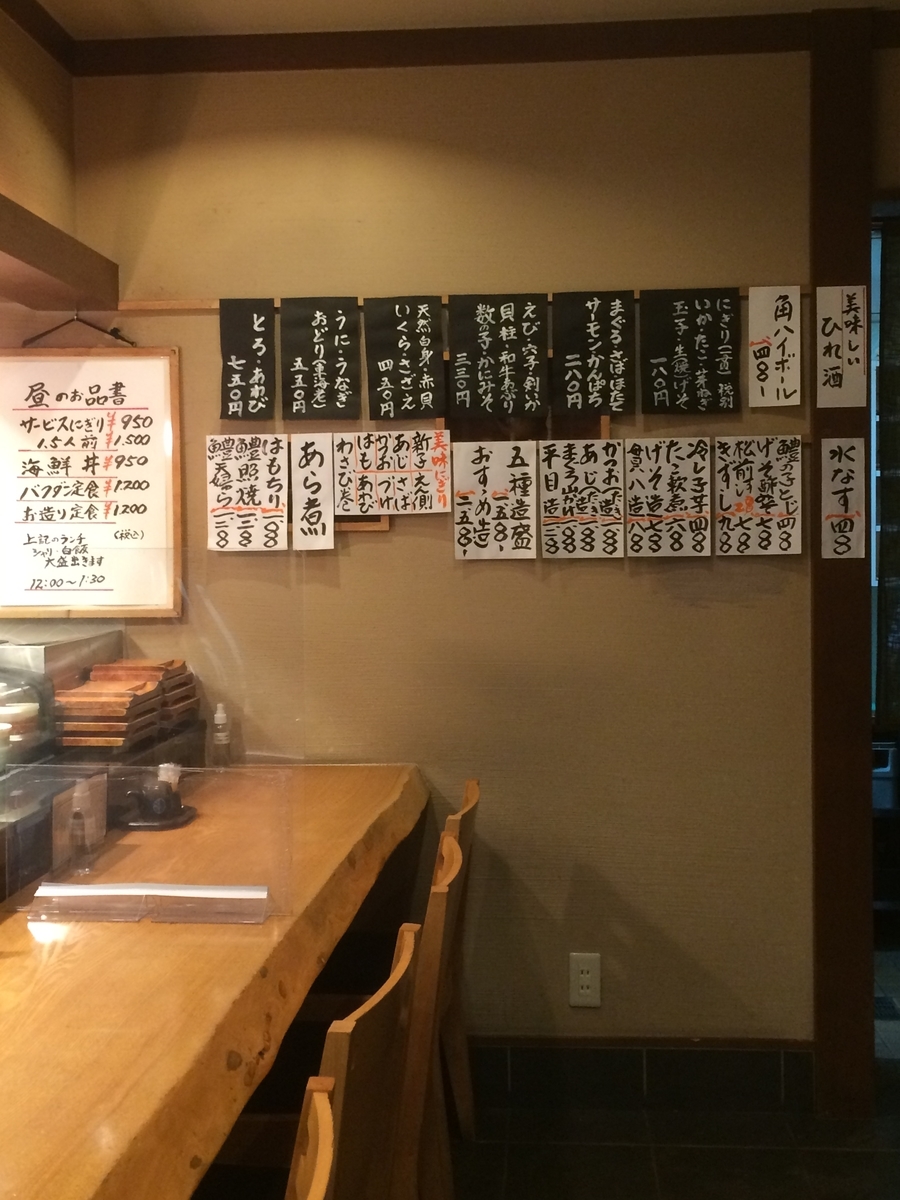 昼のお品書
サービスにぎり ¥950
1.5人前 ¥1.500
海鮮丼 ¥950
バクダン定食 ¥1200
お造り定食 ¥1200
上記のランチ (税込)
シャリ・白飯
大盛出きます
12:00〜1:30
美味しい
ひれ酒
角ハイボール
四〇〇-
にぎり(一貫) 税別
いか・たこ・芽ねぎ
玉子・生(焼)げそ
一八〇円
まぐろ・さば・ほたて
サーモン・かんぱち
二八〇円
えび・穴子・剣いか
貝柱・和牛あぶり
数の子・かにみそ
三三〇円
天然白身・赤貝
いくら・さざえ
四五〇円
うに・うなぎ
おどり(車海老)
五五〇円
とろ・あわび
七五〇円
水なす 四〇〇
鱧の子とじ 四〇〇
きずし 九〇〇
冷し子芋 四〇〇
たこ軟煮 六〇〇
げそ造
貝八造
かつおたたき
あじたたき
まぐろ山かけ
平目造
五種造盛
一五〇〇-
おすすめ生造
二五〇〇-
美味にぎり
新子 えん側
あじ さば
かつお づけ
はも あわび
わさび巻
あら煮
はもちり
鱧照焼
鱧天婦ら